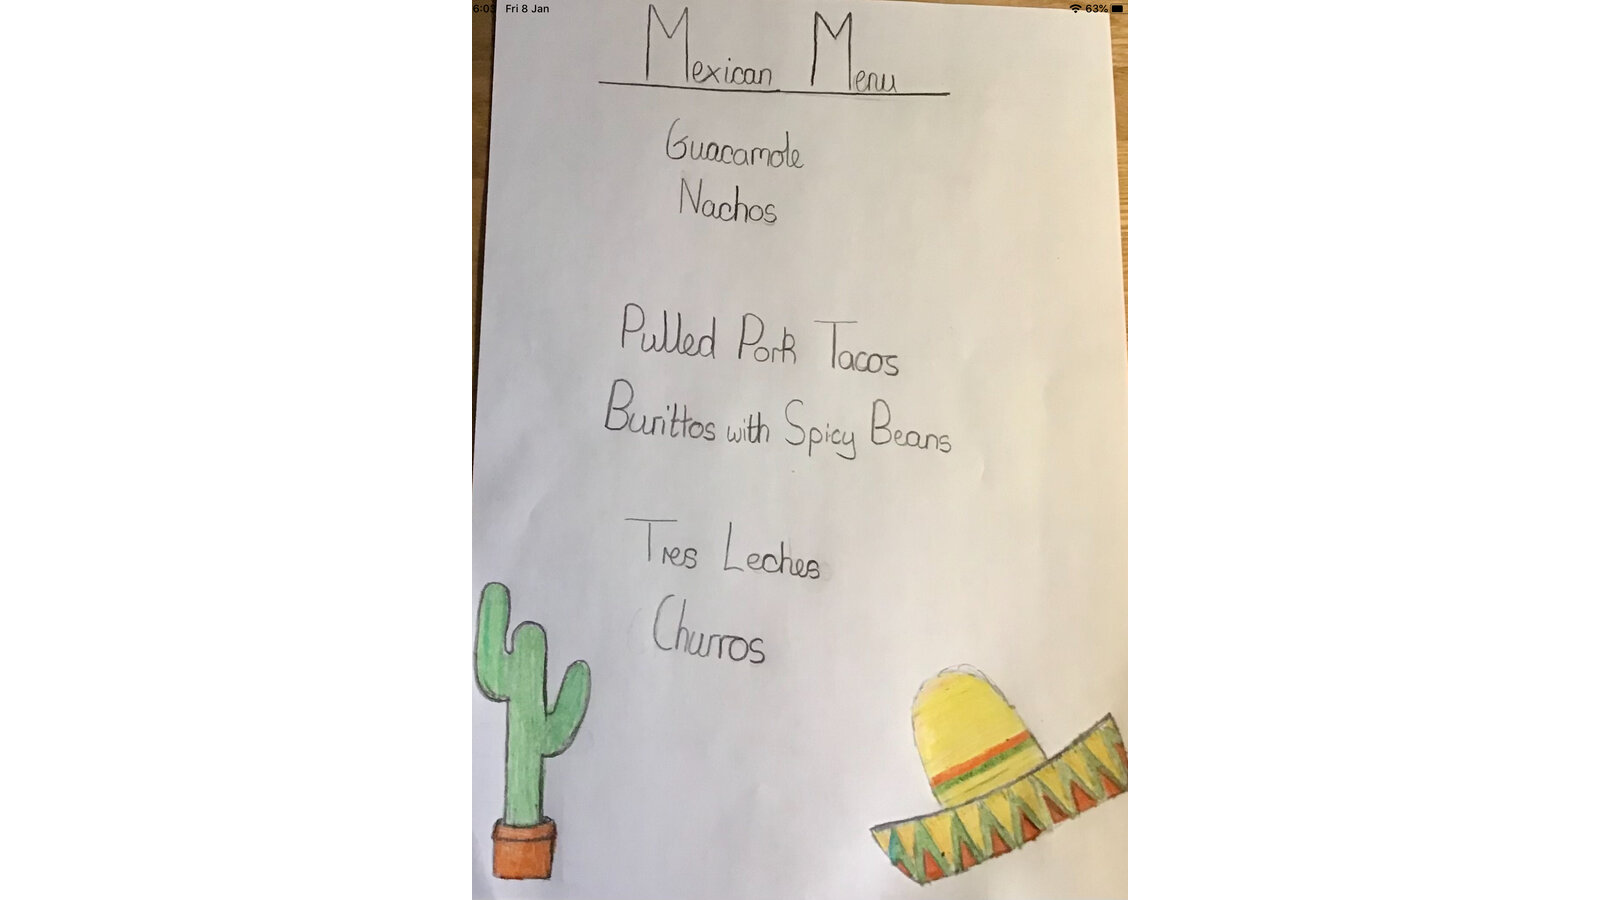 6:03 Fri 8 Jan 63%
Mexican Menu
Guacamole
Nachos
Pulled Pork Tacos
Burittos with Spicy Beans
Tres Leches
Churros